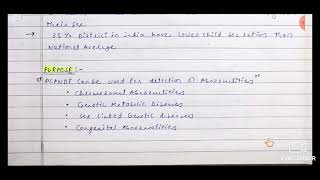 Their Sex
→ 35 % District in india have lower child sex ration than
National Average
PURPOSE :-
PCANDT Can be used for detection of Abnormilities"
• Chromosomal Abnormilities
• Genetic Metabolic Diseases
• Sex linked Genetic diseases
• Congenital Abnormalities